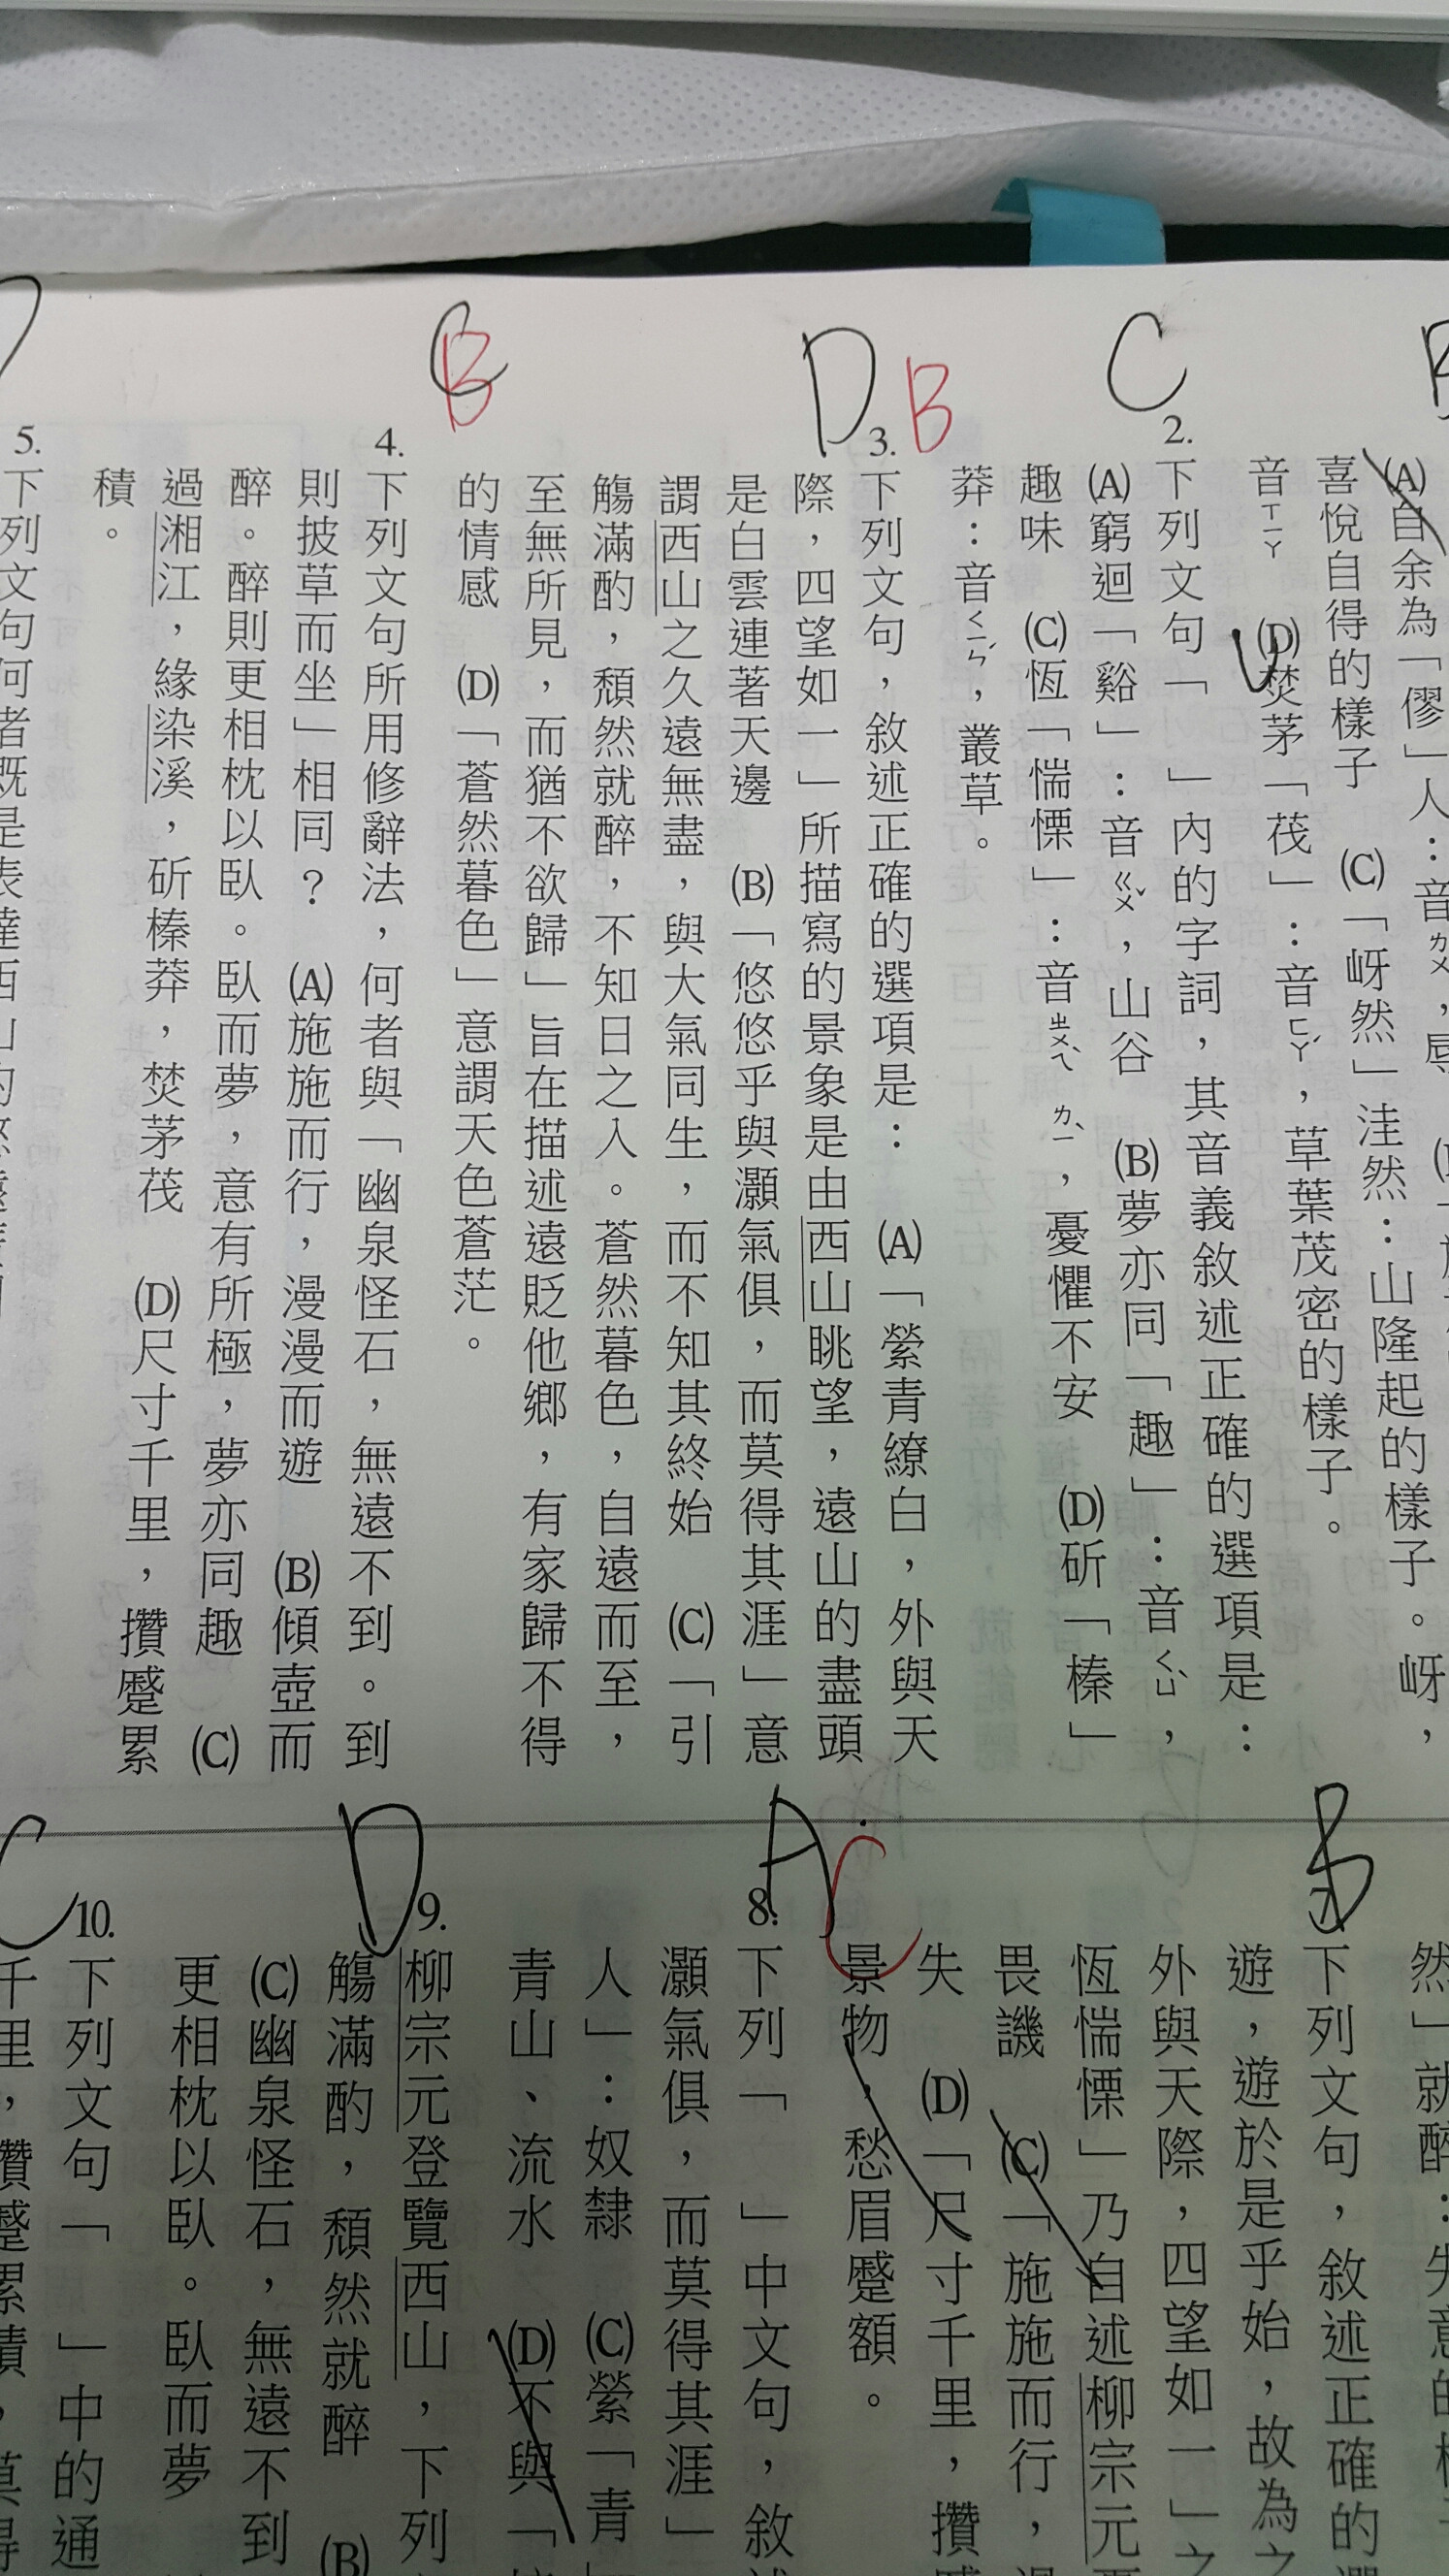 B
(A)自余為「僇」人：音ㄌㄨˋ，辱
喜悅自得的樣子　(C)「岈然」洼然：山隆起的樣子。岈，
音ㄒㄧㄚ　(D)焚茅「茷」：音ㄈㄚˊ，草葉茂密的樣子。
C
2.
下列文句「　」內的字詞，其音義敘述正確的選項是：
(A)窮迴「谿」：音ㄍㄨˇ，山谷　(B)夢亦同「趣」：音ㄑㄩˋ，
趣味　(C)恆「惴慄」：音ㄓㄨㄟˋ ㄌㄧˋ，憂懼不安　(D)斫「榛」
莽：音ㄑㄧㄣˊ，叢草。
D B
3.
下列文句，敘述正確的選項是：　(A)「縈青繚白，外與天
際，四望如一」所描寫的景象是由西山眺望，遠山的盡頭
是白雲連著天邊　(B)「悠悠乎與灝氣俱，而莫得其涯」意
謂西山之久遠無盡，與大氣同生，而不知其終始　(C)「引
觴滿酌，頹然就醉，不知日之入。蒼然暮色，自遠而至，
至無所見，而猶不欲歸」旨在描述遠貶他鄉，有家歸不得
的情感　(D)「蒼然暮色」意謂天色蒼茫。
C B
4.
下列文句所用修辭法，何者與「幽泉怪石，無遠不到。到
則披草而坐」相同？　(A)施施而行，漫漫而遊　(B)傾壺而
醉。醉則更相枕以臥。臥而夢，意有所極，夢亦同趣　(C)
過湘江，緣染溪，斫榛莽，焚茅茷　(D)尺寸千里，攢蹙累
積。
5.
下列文句何者既是表達西山的悠遠
然」就醉：失意的樣
B
7.
下列文句，敘述正確的選
遊，遊於是乎始，故為之
外與天際，四望如一」之
恆惴慄」乃自述柳宗元
畏譏　(C)「施施而行，漫
失　(D)「尺寸千里，攢蹙
景物，愁眉蹙額。
A C
8.
下列「　」中文句，敘述
灝氣俱，而莫得其涯」
人」：奴隸　(C)縈「青
青山、流水　(D)不與「
D
9.
柳宗元登覽西山，下列
觴滿酌，頹然就醉　(B)
(C)幽泉怪石，無遠不到
更相枕以臥。臥而夢
C
10.
下列文句「　」中的通
千里，攢蹙累積，莫得